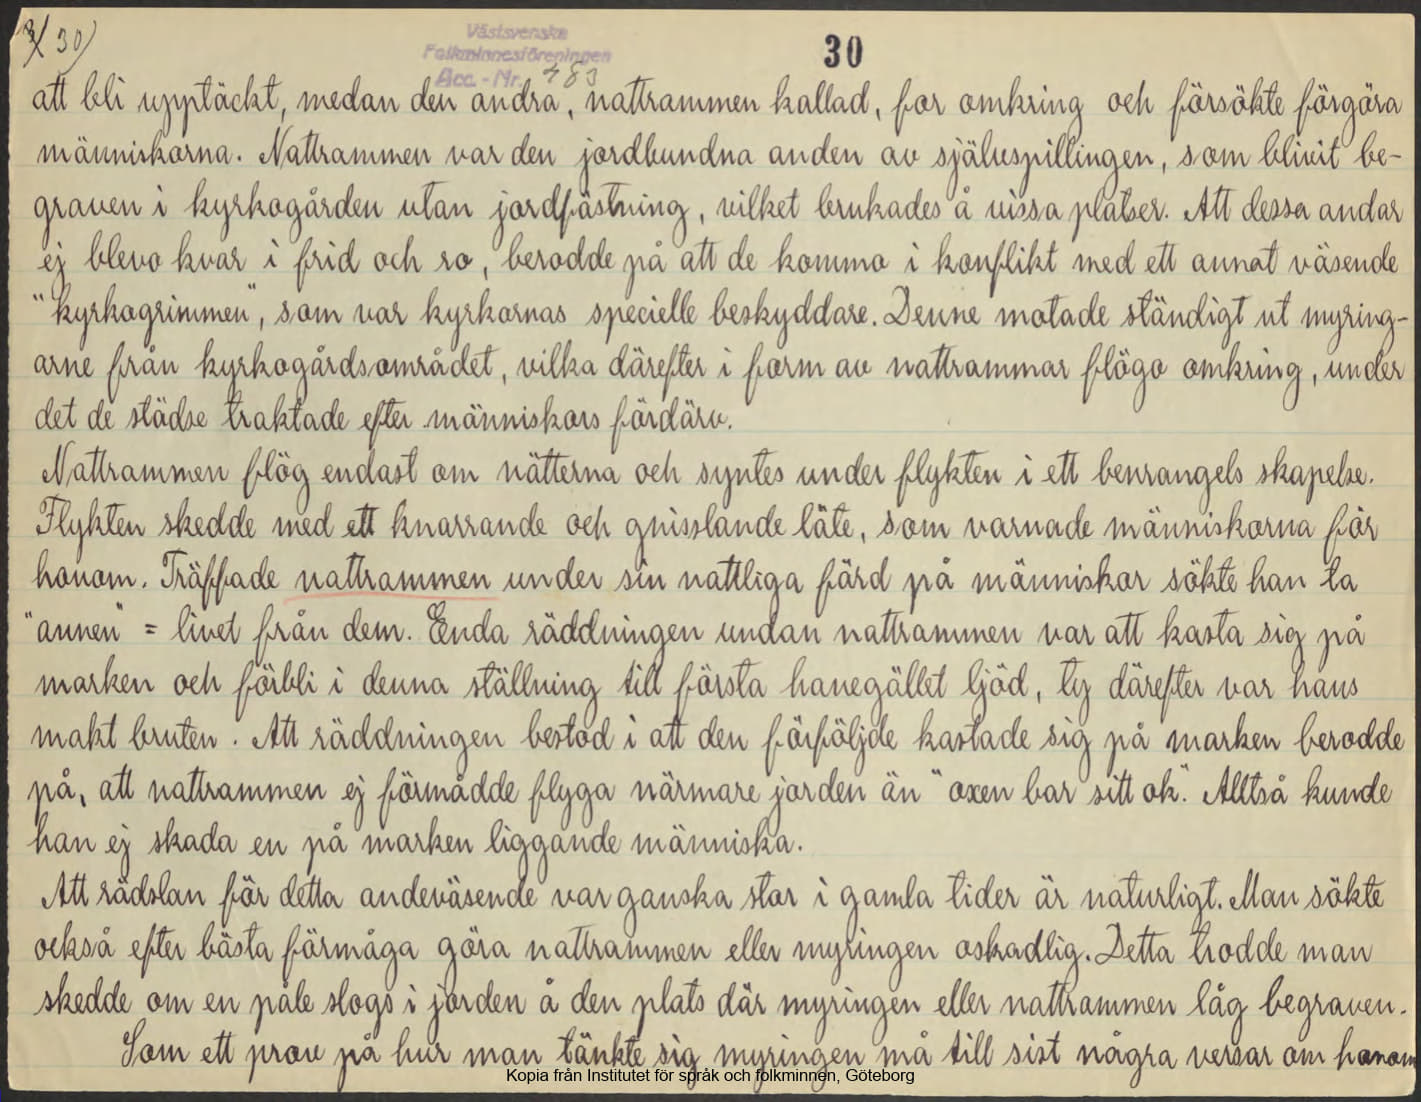 30)
Västsvenska
Folkminnesföreningen
Acc.-Nr. 483
30
att bli upptäckt, medan den andra, nattrammen kallad, for omkring och försökte förgöra
människorna. Nattrammen var den jordbundna anden av självspillingen, som blivit be-
graven i kyrkogården utan jordfästning, vilket brukades å vissa platser. Att dessa andar
ej blevo kvar i frid och ro, berodde på att de kommo i konflikt med ett annat väsende
"kyrkogrimmen", som var kyrkornas specielle beskyddare. Denne motade ständigt ut myring-
arne från kyrkogårdsområdet, vilka därefter i form av nattrammar flögo omkring, under
det de städse traktade efter människors fördärv.
Nattrammen flög endast om nätterna och syntes under flykten i ett benrangels skapelse.
Flykten skedde med ett knarrande och gnisslande läte, som varnade människorna för
honom. Träffade nattrammen under sin nattliga färd på människor sökte han ta
"annen" = livet från dem. Enda räddningen undan nattrammen var att kasta sig på
marken och förbli i denna ställning till första hanegället ljöd, ty därefter var hans
makt bruten. Att räddningen bestod i att den förföljde kastade sig på marken berodde
på, att nattrammen ej förmådde flyga närmare jorden än "oxen bar sitt ok". Alltså kunde
han ej skada en på marken liggande människa.
Att rädslan för detta andeväsende var ganska stor i gamla tider är naturligt. Man sökte
också efter bästa förmåga göra nattrammen eller myringen oskadlig. Detta trodde man
skedde om en påle slogs i jorden å den plats där myringen eller nattrammen låg begraven.
Som ett prov på hur man tänkte sig myringen må till sist några versar om honom
Kopia från Institutet för språk och folkminnen, Göteborg